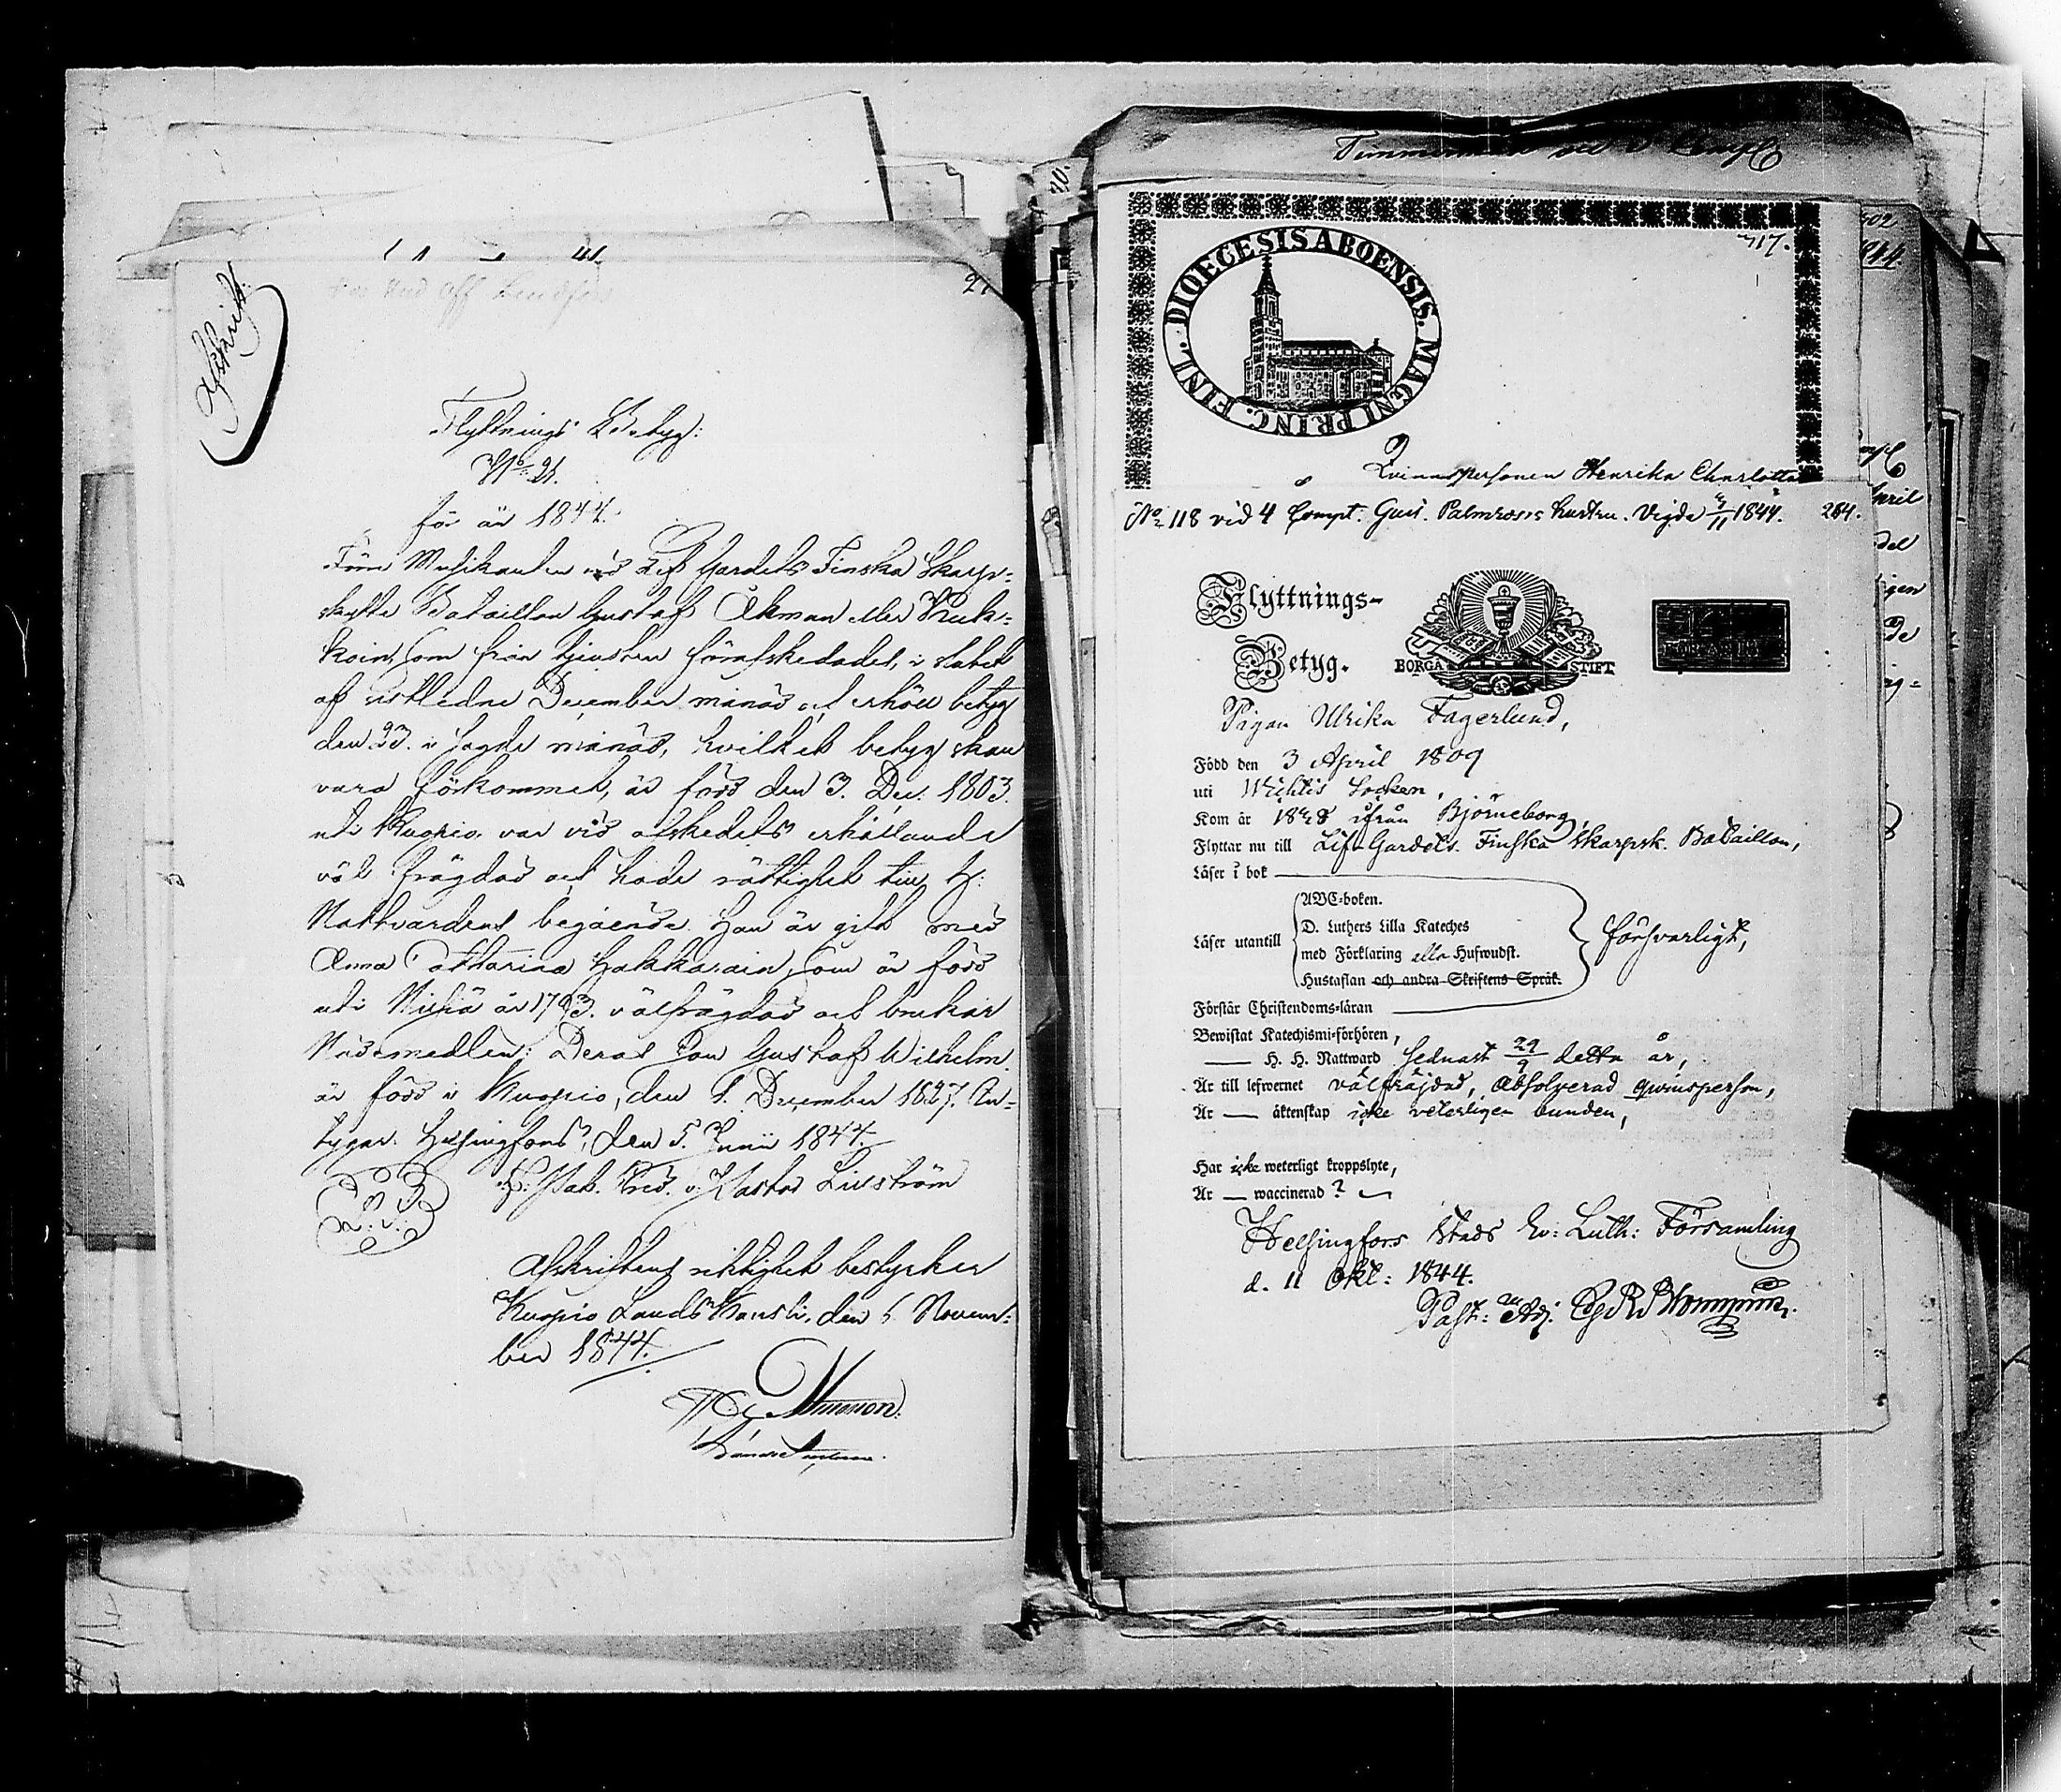 Afskrift.
Flyttnings Betyg:
N:o 21.
för år 1844.
Förre Musikanten vid Lif Gardets Finska Skarp=
skytte Bataillon Gustaf Åkman eller Kuk=
koin, som från tjensten förafskedades, i slutet
af sistledne December månad och erhöll betyg
den 23. i sagde månad, hvilket betyg skall
vara förkommet, är född den 3. Dec. 1803.
uti Kuopio, var vid afskedets erhållande
väl frägdad och hade rättighet till H:
Nattvardens begående. Han är gift med
Anna Catharina Hakkarain, som är född
uti Nilsiä år 1793. välfrägdad och brukar
Nådemedlen; Deras Son Gustaf Wilhelm
är född i Kuopio, den 1. December 1827. Be=
tygar. Helsingfors, den 5. Junii 1844.
L. S.
Afskriftens riktighet bestyrker
Kuopio Lands Kansli, den 6 Novem=
ber 1844.
DIOECESIS ABOENSIS. MAGNI PRINC. FINL.
717.
Qvinnspersonen Henrika Charlotta
N:o 118 vid 4 Compt. Gust. Palmroos hustru. Vigda 3/11 1844.
284.
Flyttnings-
Betyg.
BORGÅ STIFT
Pigan Ulrika Fagerlund,
Född den 3 April 1809
uti Wichtis Socken,
Kom år 1828 ifrån Björneborg,
Flyttar nu till Lif-Gardets Finska Skarpsk. Bataillon,
Läser i bok
ABC-boken.
D. Luthers Lilla Kateches
Läser utantill
med Förklaring Hufwudst.
försvarligt,
Hustaflan och andra Skriftens Språk.
Förstår Christendoms-läran
Bewistat Katechismi-förhören,
— H. H. Nattward sednast 29/9 detta år,
Är till lefwernet välfräjdad, absolverad qvinsperson,
Är — äktenskap icke veterligen bunden,
Har icke weterligt kroppslyte,
Är — waccinerad?
Helsingfors Stads Ev: Luth: Församling
d. 11 Okt: 1844.
Past: Adj: